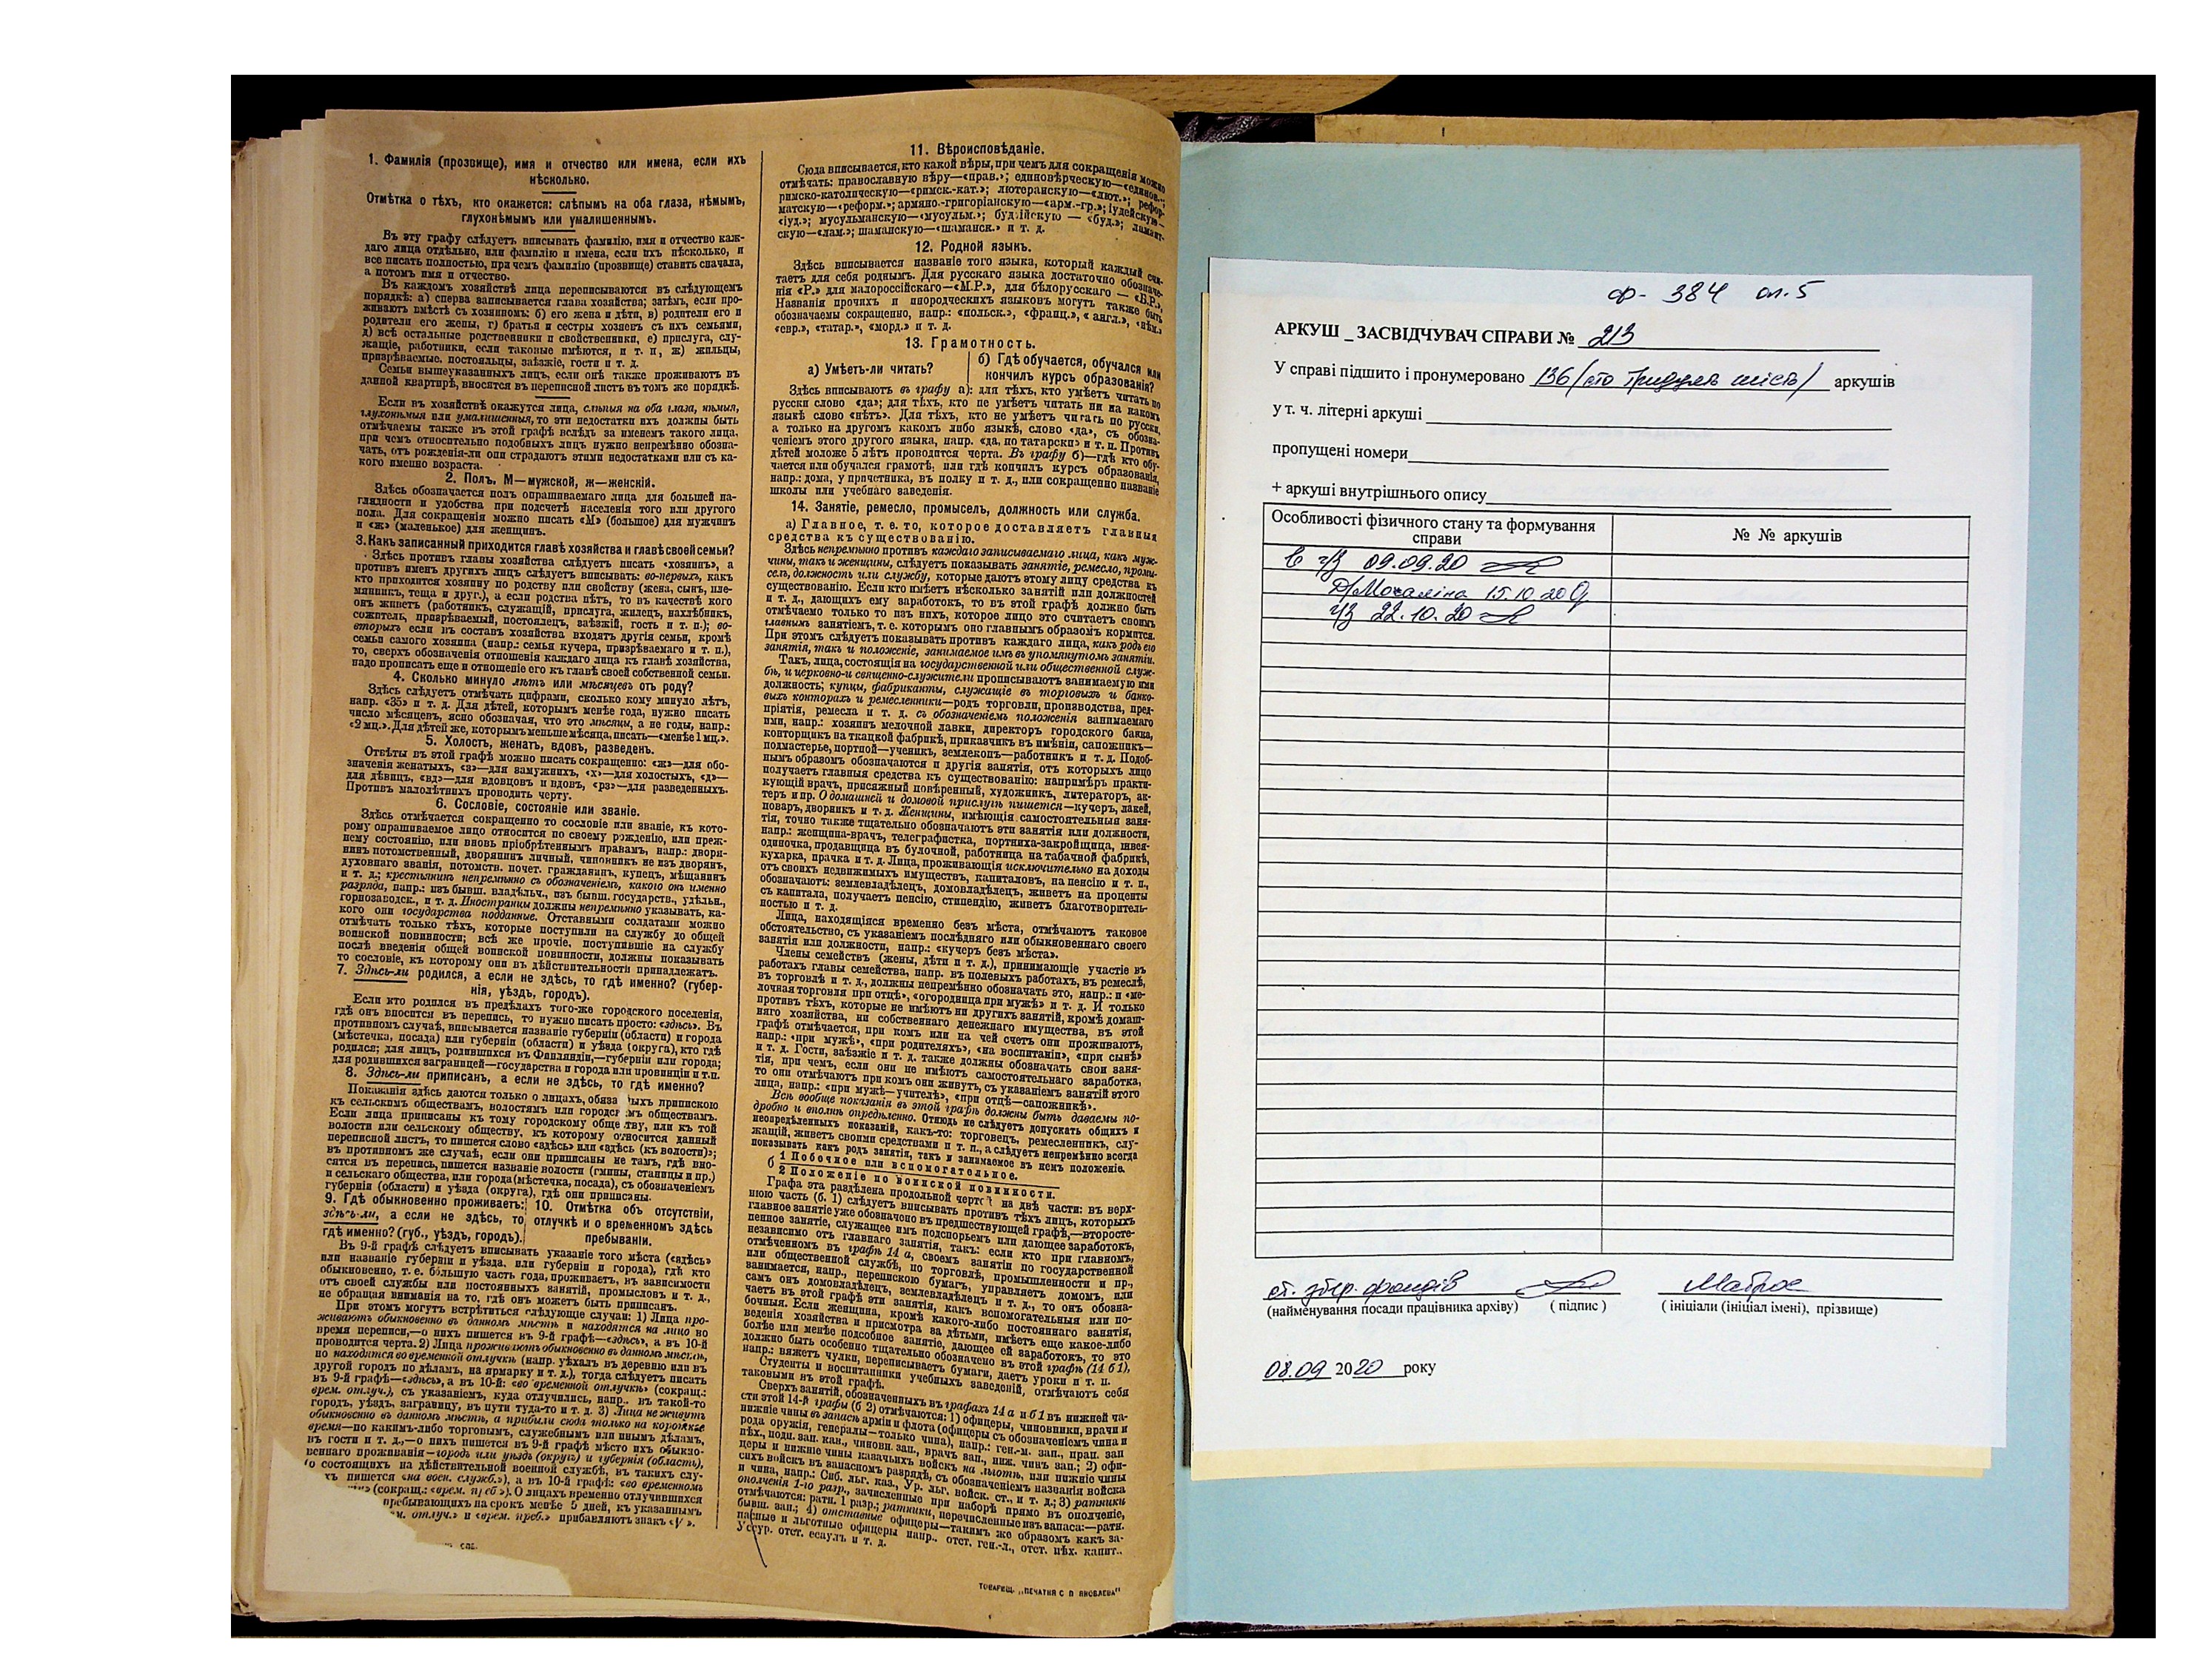 1. Фамилія (прозвище), имя и отчество или имена, если ихъ
нѣсколько.
Отмѣтка о тѣхъ, кто окажется: слѣпымъ на оба глаза, нѣмымъ,
глухонѣмымъ или умалишеннымъ.
Въ эту графу слѣдуетъ вписывать фамилію, имя и отчество каж-
даго лица отдѣльно, или фамилію и имена, если ихъ нѣсколько, и
все писать полностью, при чемъ фамилію (прозвище) ставить сначала,
а потомъ имя и отчество.
Въ каждомъ хозяйствѣ лица переписываются въ слѣдующемъ
порядкѣ: а) сперва записывается глава хозяйства; затѣмъ, если про-
живаютъ вмѣстѣ съ хозяиномъ: б) его жена и дѣти, в) родители его и
родители его жены, г) братья и сестры хозяевъ съ ихъ семьями,
д) всѣ остальные родственники и свойственники, е) прислуга, слу-
жащіе, работники, если таковые имѣются, и т. п., ж) жильцы,
призрѣваемые, постояльцы, заѣзжіе, гости и т. д.
Семьи вышеуказанныхъ лицъ, если онѣ также проживаютъ въ
данной квартирѣ, вносятся въ переписной листъ въ томъ же порядкѣ.
Если въ хозяйствѣ окажутся лица, слѣпыя на оба глаза, нѣмыя,
глухонѣмыя или умалишенныя, то эти недостатки ихъ должны быть
отмѣчаемы также въ этой графѣ вслѣдъ за именемъ такого лица,
при чемъ относительно подобныхъ лицъ нужно непремѣнно обозна-
чать, отъ рожденія-ли они страдаютъ этими недостатками или съ ка-
кого именно возраста.
2. Полъ, М—мужской, ж—женскій.
Здѣсь обозначается полъ опрашиваемаго лица для большей на-
глядности и удобства при подсчетѣ населенія того или другого
пола. Для сокращенія можно писать «М» (большое) для мужчинъ
и «ж» (маленькое) для женщинъ.
3. Какъ записанный приходится главѣ хозяйства и главѣ своей семьи?
Здѣсь противъ главы хозяйства слѣдуетъ писать «хозяинъ», а
противъ именъ другихъ лицъ слѣдуетъ вписывать: во-первыхъ, какъ
кто приходится хозяину по родству или свойству (жена, сынъ, пле-
мянникъ, теща и друг.), а если родства нѣтъ, то въ качествѣ кого
онъ живетъ (работникъ, служащій, прислуга, жилецъ, нахлѣбникъ,
сожитель, призрѣваемый, постоялецъ, заѣзжій, гость и т. п.); во-
вторыхъ если въ составъ хозяйства входятъ другія семьи, кромѣ
семьи самого хозяина (напр.: семья кучера, призрѣваемаго и т. п.),
то, сверхъ обозначенія отношенія каждаго лица къ главѣ хозяйства,
надо прописать еще и отношеніе его къ главѣ своей собственной семьи.
4. Сколько минуло лѣтъ или мѣсяцевъ отъ роду?
Здѣсь слѣдуетъ отмѣчать цифрами, сколько кому минуло лѣтъ,
напр. «35» и т. д. Для дѣтей, которымъ менѣе года, нужно писать
число мѣсяцевъ, ясно обозначая, что это мѣсяцы, а не годы, напр.:
«2 мц.». Для дѣтей же, которымъ меньше мѣсяца, писать—«менѣе 1 мц.».
5. Холостъ, женатъ, вдовъ, разведенъ.
Отвѣты въ этой графѣ можно писать сокращенно: «ж»—для обо-
значенія женатыхъ, «з»—для замужнихъ, «х»—для холостыхъ, «д»—
для дѣвицъ, «вд»—для вдовцовъ и вдовъ, «рз»—для разведенныхъ.
Противъ малолѣтнихъ проводить черту.
6. Сословіе, состояніе или званіе.
Здѣсь отмѣчается сокращенно то сословіе или званіе, къ кото-
рому опрашиваемое лицо относится по своему рожденію, или преж-
нему состоянію, или вновь пріобрѣтеннымъ правамъ, напр.: дворя-
нинъ потомственный, дворянинъ личный, чиновникъ не изъ дворянъ,
духовнаго званія, потомств. почет. гражданинъ, купецъ, мѣщанинъ
и т. д.; крестьянинъ непремѣнно съ обозначеніемъ, какого онъ именно
разряда, напр.: изъ бывш. владѣльч., изъ бывш. государств., удѣльн.,
горнозаводск., и т. д. Иностранцы должны непремѣнно указывать, ка-
кого они государства подданные. Отставными солдатами можно
отмѣчать только тѣхъ, которые поступили на службу до общей
воинской повинности; всѣ же прочіе, поступившіе на службу
послѣ введенія общей воинской повинности, должны показывать
то сословіе, къ которому они въ дѣйствительности принадлежатъ.
7. Здѣсь-ли родился, а если не здѣсь, то гдѣ именно? (губер-
нія, уѣздъ, городъ).
Если кто родился въ предѣлахъ того-же городского поселенія,
гдѣ онъ вносится въ перепись, то нужно писать просто: «здѣсь». Въ
противномъ случаѣ, вписывается названіе губерніи (области) и города
(мѣстечка, посада) или губерніи (области) и уѣзда (округа), кто гдѣ
родился; для лицъ, родившихся въ Финляндіи,—губерніи или города;
для родившихся заграницей—государства и города или провинціи и т.п.
8. Здѣсь-ли приписанъ, а если не здѣсь, то гдѣ именно?
Показанія здѣсь даются только о лицахъ, обяза ыхъ припискою
къ сельскимъ обществамъ, волостямъ или городск мъ обществамъ.
Если лица приписаны къ тому городскому обще тву, или къ той
волости или сельскому обществу, къ которому относится данный
переписной листъ, то пишется слово «здѣсь» или «здѣсь (къ волости)»;
въ противномъ же случаѣ, если они приписаны не тамъ, гдѣ вно-
сятся въ перепись, пишется названіе волости (гмины, станицы и пр.)
и сельскаго общества, или города (мѣстечка, посада), съ обозначеніемъ
губерніи (области) и уѣзда (округа), гдѣ они приписаны.
9. Гдѣ обыкновенно проживаетъ: 10. Отмѣтка объ отсутствіи,
здѣсь-ли, а если не здѣсь, то отлучкѣ и о временномъ здѣсь
гдѣ именно? (губ., уѣздъ, городъ). пребываніи.
Въ 9-й графѣ слѣдуетъ вписывать указаніе того мѣста («здѣсь»
или названіе губерніи и уѣзда, или губерніи и города), гдѣ кто
обыкновенно, т. е. бо́льшую часть года, проживаетъ, въ зависимости
отъ своей службы или постоянныхъ занятій, промысловъ и т. д.,
не обращая вниманія на то, гдѣ онъ можетъ быть приписанъ.
При этомъ могутъ встрѣтиться слѣдующіе случаи: 1) Лица про-
живаютъ обыкновенно въ данномъ мѣстѣ и находятся на лицо во
время переписи,—о нихъ пишется въ 9-й графѣ—«здѣсь», а въ 10-й
проводится черта. 2) Лица проживаютъ обыкновенно въ данномъ мѣстѣ,
но находятся во временной отлучкѣ (напр. уѣхалъ въ деревню или въ
другой городъ по дѣламъ, на ярмарку и т. д.), тогда слѣдуетъ писать
въ 9-й графѣ—«здѣсь», а въ 10-й: «во временной отлучкѣ» (сокращ.:
врем. отлуч.), съ указаніемъ, куда отлучились, напр., въ такой-то
городъ, уѣздъ, заграницу, въ пути туда-то и т. д. 3) Лица не живутъ
обыкновенно въ данномъ мѣстѣ, а прибыли сюда только на короткое
время—по какимъ-либо торговымъ, служебнымъ или инымъ дѣламъ,
въ гости и т. д.,—о нихъ пишется въ 9-й графѣ мѣсто ихъ обыкно-
веннаго проживанія—городъ или уѣздъ (округъ) и губернія (область),
(о состоящихъ на дѣйствительной военной службѣ, въ такихъ слу-
хъ пишется «на воен. служб.»), а въ 10-й графѣ: «во временномъ
(сокращ.: «врем. преб»). О лицахъ временно отлучившихся
пребывающихъ на срокъ менѣе 5 дней, къ указаннымъ
м. отлуч.» и «врем. преб.» прибавляютъ знакъ «V».
СПБ.
11. Вѣроисповѣданіе.
Сюда вписывается, кто какой вѣры, при чемъ для сокращенія можно
отмѣчать: православную вѣру—«прав.»; единовѣрческую—«единов.»;
римско-католическую—«римск.-кат.»; лютеранскую—«лют.»; рефор-
матскую—«реформ.»; армяно-григоріанскую—«арм.-гр.»; іудейскую—
«іуд.»; мусульманскую—«мусульм.»; буддійскую — «буд.»; ламаит-
скую—«лам.»; шаманскую—«шаманск.» и т. д.
12. Родной языкъ.
Здѣсь вписывается названіе того языка, который каждый счи-
таетъ для себя роднымъ. Для русскаго языка достаточно обозначе-
нія «Р.» для малороссійскаго—«М.Р.», для бѣлорусскаго — «Б.Р.»,
Названія прочихъ и инородческихъ языковъ могутъ также быть
обозначаемы сокращенно, напр.: «польск.», «франц.», « англ.», «нѣм.»
«евр.», «татар.», «морд.» и т. д.
13. Грамотность.
а) Умѣетъ-ли читать? б) Гдѣ обучается, обучался или
кончилъ курсъ образованія?
Здѣсь вписываютъ въ графу а): для тѣхъ, кто умѣетъ читать по
русски слово «да»; для тѣхъ, кто не умѣетъ читать ни на какомъ
языкѣ слово «нѣтъ». Для тѣхъ, кто не умѣетъ читать по русски,
а только на другомъ какомъ либо языкѣ, слово «да», съ обозна-
ченіемъ этого другого языка, напр. «да, по татарски» и т. п. Противъ
дѣтей моложе 5 лѣтъ проводится черта. Въ графу б)—гдѣ кто обу-
чается или обучался грамотѣ, или гдѣ кончилъ курсъ образованія,
напр.: дома, у причетника, въ полку и т. д., или сокращенно названіе
школы или учебнаго заведенія.
14. Занятіе, ремесло, промыселъ, должность или служба.
а) Главное, т. е. то, которое доставляетъ главныя
средства къ существованію.
Здѣсь непремѣнно противъ каждаго записываемаго лица, какъ муж-
чины, такъ и женщины, слѣдуетъ показывать занятіе, ремесло, промы-
селъ, должность или службу, которые даютъ этому лицу средства къ
существованію. Если кто имѣетъ нѣсколько занятій или должностей
и т. д., дающихъ ему заработокъ, то въ этой графѣ должно быть
отмѣчаемо только то изъ нихъ, которое лицо это считаетъ своимъ
главнымъ занятіемъ, т. е. которымъ оно главнымъ образомъ кормится.
При этомъ слѣдуетъ показывать противъ каждаго лица, какъ родъ его
занятія, такъ и положеніе, занимаемое имъ въ упомянутомъ занятіи.
Такъ, лица, состоящія на государственной или общественной служ-
бѣ, и церковно-и священно-служители прописываютъ занимаемую ими
должность; купцы, фабриканты, служащіе въ торговыхъ и банко-
выхъ конторахъ и ремесленники—родъ торговли, производства, пред-
пріятія, ремесла и т. д. съ обозначеніемъ положенія занимаемаго
ими, напр.: хозяинъ мелочной лавки, директоръ городского банка,
конторщикъ на ткацкой фабрикѣ, приказчикъ въ имѣніи, сапожникъ—
подмастерье, портной—ученикъ, землекопъ—работникъ и т. д. Подоб-
нымъ образомъ обозначаются и другія занятія, отъ которыхъ лицо
получаетъ главныя средства къ существованію: напримѣръ практи-
кующій врачъ, присяжный повѣренный, художникъ, литераторъ, ак-
теръ и пр. О домашней и домовой прислугѣ пишется—кучеръ, лакей,
поваръ, дворникъ и т. д. Женщины, имѣющія самостоятельныя заня-
тія, точно также тщательно обозначаютъ эти занятія или должности,
напр.: женщина-врачъ, телеграфистка, портниха-закройщица, швея-
одиночка, продавщица въ булочной, работница на табачной фабрикѣ,
кухарка, прачка и т. д. Лица, проживающія исключительно на доходы
отъ своихъ недвижимыхъ имуществъ, капиталовъ, на пенсію и т. п.,
обозначаютъ: землевладѣлецъ, домовладѣлецъ, живетъ на проценты
съ капитала, получаетъ пенсію, стипендію, живетъ благотворитель-
ностью и т. д.
Лица, находящіяся временно безъ мѣста, отмѣчаютъ таковое
обстоятельство, съ указаніемъ послѣдняго или обыкновеннаго своего
занятія или должности, напр.: «кучеръ безъ мѣста».
Члены семействъ (жены, дѣти и т. д.), принимающіе участіе въ
работахъ главы семейства, напр. въ полевыхъ работахъ, въ ремеслѣ,
въ торговлѣ и т. д., должны непремѣнно обозначать это, напр.: и «ме-
лочная торговля при отцѣ», «огородница при мужѣ» и т. д. И только
противъ тѣхъ, которые не имѣютъ ни другихъ занятій, кромѣ домаш-
няго хозяйства, ни собственнаго денежнаго имущества, въ этой
графѣ отмѣчается, при комъ или на чей счетъ они проживаютъ,
напр.: «при мужѣ», «при родителяхъ», «на воспитаніи», «при сынѣ»
и т. д. Гости, заѣзжіе и т. д. также должны обозначать свои заня-
тія, при чемъ, если они не имѣютъ самостоятельнаго заработка,
то они отмѣчаютъ при комъ они живутъ, съ указаніемъ занятій этого
лица, напр.: «при мужѣ—учителѣ», «при отцѣ—сапожникѣ».
Всѣ вообще показанія въ этой графѣ должны быть даваемы по-
дробно и вполнѣ опредѣленно. Отнюдь не слѣдуетъ допускать общихъ и
неопредѣленныхъ показаній, какъ-то: торговецъ, ремесленникъ, слу-
жащій, живетъ своими средствами и т. п., а слѣдуетъ непремѣнно всегда
показывать какъ родъ занятія, такъ и занимаемое въ немъ положеніе.
б 1 Побочное или вспомогательное.
2 Положеніе по воинской повинности.
Графа эта раздѣлена продольной чертой на двѣ части: въ верх-
нюю часть (б. 1) слѣдуетъ вписывать противъ тѣхъ лицъ, которыхъ
главное занятіе уже обозначено въ предшествующей графѣ,—второсте-
пенное занятіе, служащее имъ подспорьемъ или дающее заработокъ,
независимо отъ главнаго занятія, такъ: если кто при главномъ,
отмѣченномъ въ графѣ 14 а, своемъ занятіи по государственной
или общественной службѣ, по торговлѣ, промышленности и пр.,
занимается, напр., перепискою бумагъ, управляетъ домомъ, или
самъ онъ домовладѣлецъ, землевладѣлецъ и т. д., то онъ обозна-
чаетъ въ этой графѣ эти занятія, какъ вспомогательныя или по-
бочныя. Если женщина, кромѣ какого-либо постояннаго занятія,
веденія хозяйства и присмотра за дѣтьми, имѣетъ еще какое-либо
болѣе или менѣе подсобное занятіе, дающее ей заработокъ, то это
должно быть особенно тщательно обозначено въ этой графѣ (14 б 1),
напр.: вяжетъ чулки, переписываетъ бумаги, даетъ уроки и т. п.
Студенты и воспитанники учебныхъ заведеній, отмѣчаютъ себя
таковыми въ этой графѣ.
Сверхъ занятій, обозначенныхъ въ графахъ 14 а и б 1 въ нижней ча-
сти этой 14-й графы (б 2) отмѣчаются: 1) офицеры, чиновники, врачи и
нижніе чины въ запасѣ арміи и флота (офицеры съ обозначеніемъ чина и
рода оружія, генералы—только чина), напр.: ген.-м. зап., прап. зап
пѣх., подп. зап. кав., чиновн. зап., врачъ зап., ниж. чинъ зап.; 2) офи-
церы и нижніе чины казачьихъ войскъ на льготѣ, или нижніе чины
сихъ войскъ въ запасномъ разрядѣ, съ обозначеніемъ названія войска
и чина, напр.: Сиб. льг. каз., Ур. льг. войск. ст., и т. д.; 3) ратники
ополченія 1-го разр., зачисленные при наборѣ прямо въ ополченіе,
отмѣчаются: ратн. 1 разр.; ратники, перечисленные изъ запаса:—ратн.
бывш. зап.; 4) отставные офицеры—такимъ же образомъ какъ за-
пасные и льготные офицеры напр.. отст. ген.-л., отст. пѣх. капит..
Уссур. отст. есаулъ и т. д.
ТОВАРИЩ. „ПЕЧАТНЯ С П ЯКОВЛЕВА"
ф- 384 оп. 5
АРКУШ _ ЗАСВІДЧУВАЧ СПРАВИ № 213
У справі підшито і пронумеровано 136 /сто тридцять шість/ аркушів
у т. ч. літерні аркуші
пропущені номери
+ аркуші внутрішнього опису
Особливості фізичного стану та формування
справи
№ № аркушів
В ч/з 09.09.20
15.10.20
ч/з 22.10.20
ст. збер. фондів
(найменування посади працівника архіву) ( підпис ) ( ініціали (ініціал імені), прізвище)
08.09 2020 року